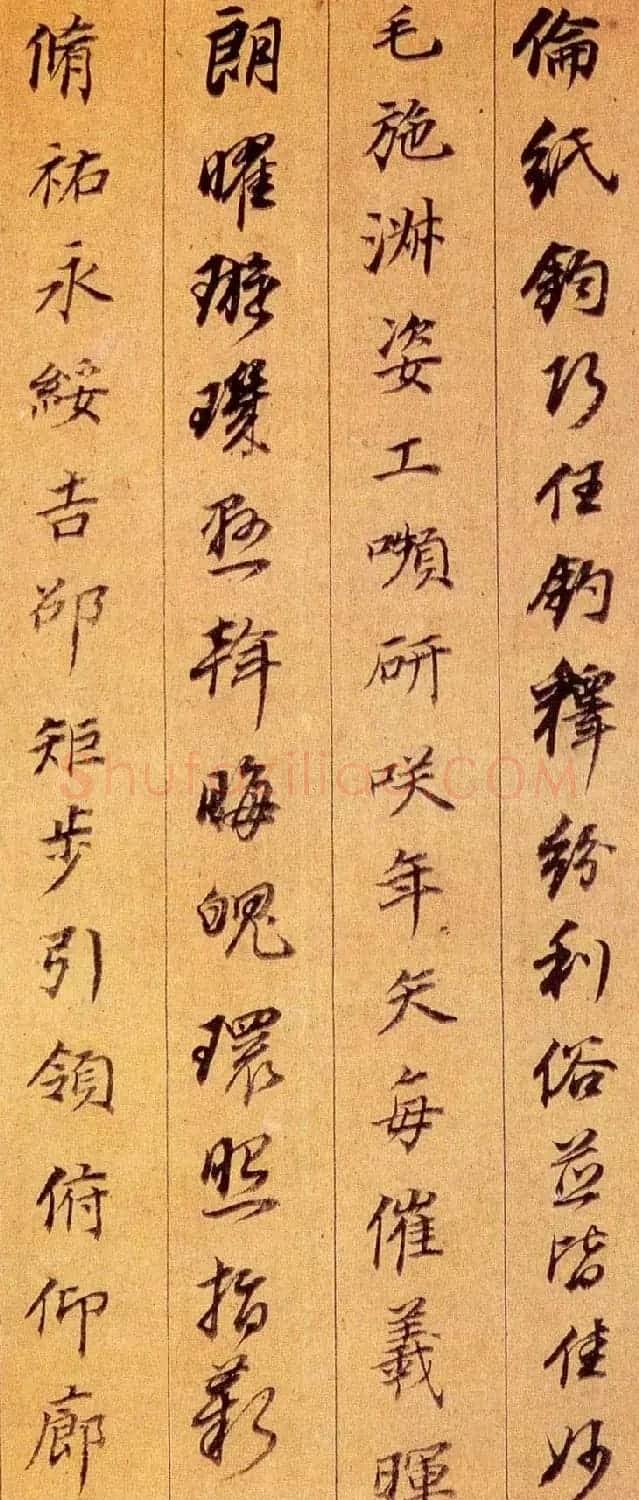 倫紙鈎巧任釣釋紛利俗並皆佳妙
毛施淋姿工嚬研咲年矢每催羲暉
朗曜璇璣懸斡晦魄環照指薪
脩祐永綏吉邵矩步引領俯仰廊
shufaziliao.COM